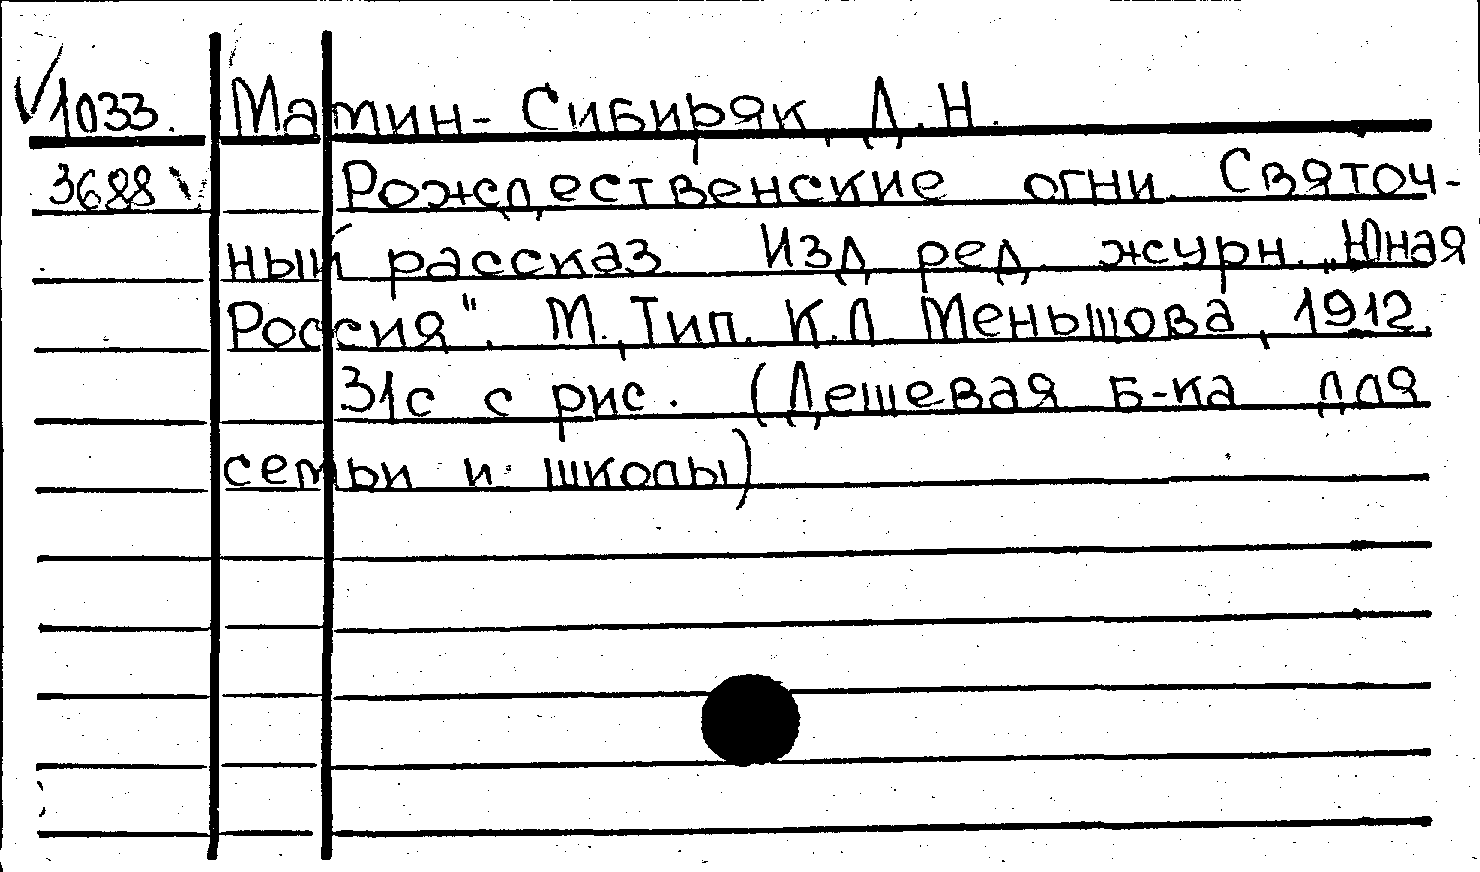 1033. Мамин-Сибиряк, Д.Н.
3688 Рождественские огни. Святоч-
ный рассказ Изд. ред. журн. „Юная
Россия". М., Тип. К.Л Меньшова, 1912.
31с с рис. (Дешевая б-ка для
семьи и школы)